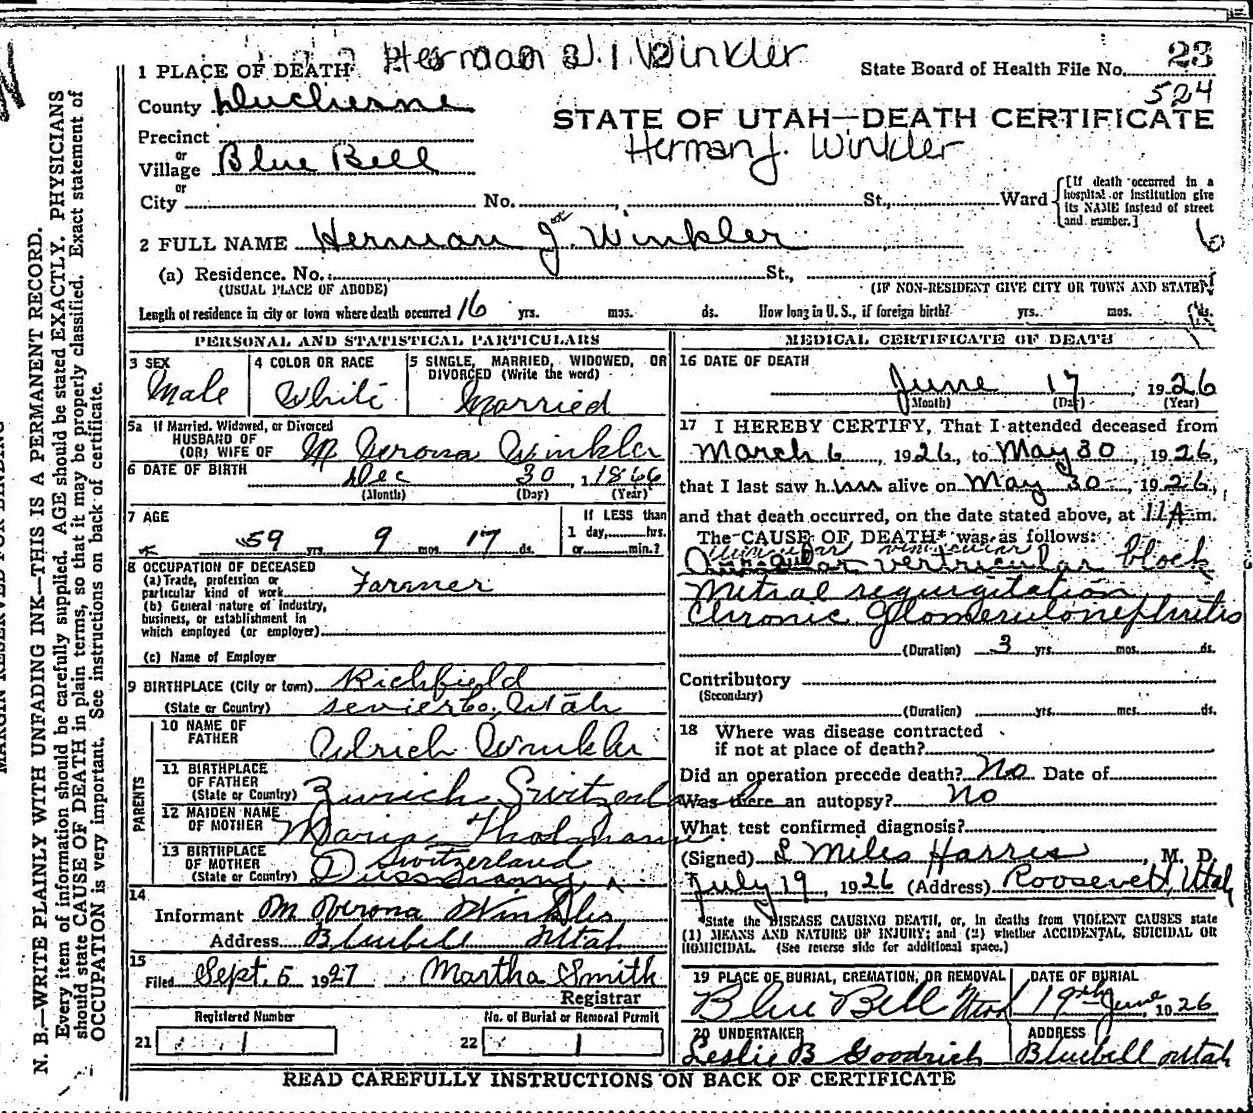 Herman J. Winkler
1 PLACE OF DEATH
State Board of Health File No. 23
524
County Duchesne
STATE OF UTAH—DEATH CERTIFICATE
Herman J. Winkler
Precinct
or
Village Blue Bell
or
City No. , St., Ward
[If death occurred in a hospital or institution give its NAME instead of street and number.]
6
2 FULL NAME Herman J. Winkler
(a) Residence. No. St.,
(USUAL PLACE OF ABODE) (IF NON-RESIDENT GIVE CITY OR TOWN AND STATE)
Length of residence in city or town where death occurred 16 yrs. mos. ds. How long in U. S., if foreign birth? yrs. mos. ds.
PERSONAL AND STATISTICAL PARTICULARS
3 SEX
Male
4 COLOR OR RACE
White
5 SINGLE, MARRIED, WIDOWED, OR
DIVORCED (Write the word)
Married
5a If Married, Widowed, or Divorced
HUSBAND OF
(OR) WIFE OF M Verona Winkler
6 DATE OF BIRTH Dec 30, 1866
(Month) (Day) (Year)
7 AGE
59 yrs. 9 mos. 17 ds.
If LESS than
1 day, hrs.
or min.?
8 OCCUPATION OF DECEASED
(a) Trade, profession or
particular kind of work Farmer
(b) General nature of industry,
business, or establishment in
which employed (or employer)
(c) Name of Employer
9 BIRTHPLACE (City or town) Richfield
(State or Country) Sevier Co, Utah
PARENTS
10 NAME OF
FATHER Ulrich Winkler
11 BIRTHPLACE
OF FATHER
(State or Country) Zurich Switzerland
12 MAIDEN NAME
OF MOTHER Maria
13 BIRTHPLACE
OF MOTHER
(State or Country) Switzerland
14
Informant M Verona Winkler
Address Bluebell Utah
15
Filed Sept. 5 1927 Martha Smith
Registrar
Registered Number No. of Burial or Removal Permit
21 22
MEDICAL CERTIFICATE OF DEATH
16 DATE OF DEATH
June 17 1926
(Month) (Day) (Year)
17 I HEREBY CERTIFY, That I attended deceased from
March 6, 1926, to May 30, 1926,
that I last saw him alive on May 30, 1926,
and that death occurred, on the date stated above, at 11 A m.
The CAUSE OF DEATH* was as follows:
ventricular block
Mitral regurgitation
Chronic Glomerulonephritis
(Duration) 3 yrs. mos. ds.
Contributory
(Secondary)
(Duration) yrs. mos. ds.
18 Where was disease contracted
if not at place of death?
Did an operation precede death? No Date of
Was there an autopsy? No
What test confirmed diagnosis?
(Signed) L Miles Harris, M. D.
July 19, 1926 (Address) Roosevelt, Utah
*State the DISEASE CAUSING DEATH, or, in deaths from VIOLENT CAUSES state
(1) MEANS AND NATURE OF INJURY; and (2) whether ACCIDENTAL, SUICIDAL OR
HOMICIDAL. (See reverse side for additional space.)
19 PLACE OF BURIAL, CREMATION, OR REMOVAL
Blue Bell Utah
DATE OF BURIAL
19th June, 1926
20 UNDERTAKER
Leslie B Goodrich
ADDRESS
Bluebell Utah
READ CAREFULLY INSTRUCTIONS ON BACK OF CERTIFICATE
MARGIN RESERVED FOR BINDING
N. B.—WRITE PLAINLY WITH UNFADING INK—THIS IS A PERMANENT RECORD.
Every item of information should be carefully supplied. AGE should be stated EXACTLY. PHYSICIANS
should state CAUSE OF DEATH in plain terms, so that it may be properly classified. Exact statement of
OCCUPATION is very important. See instructions on back of certificate.